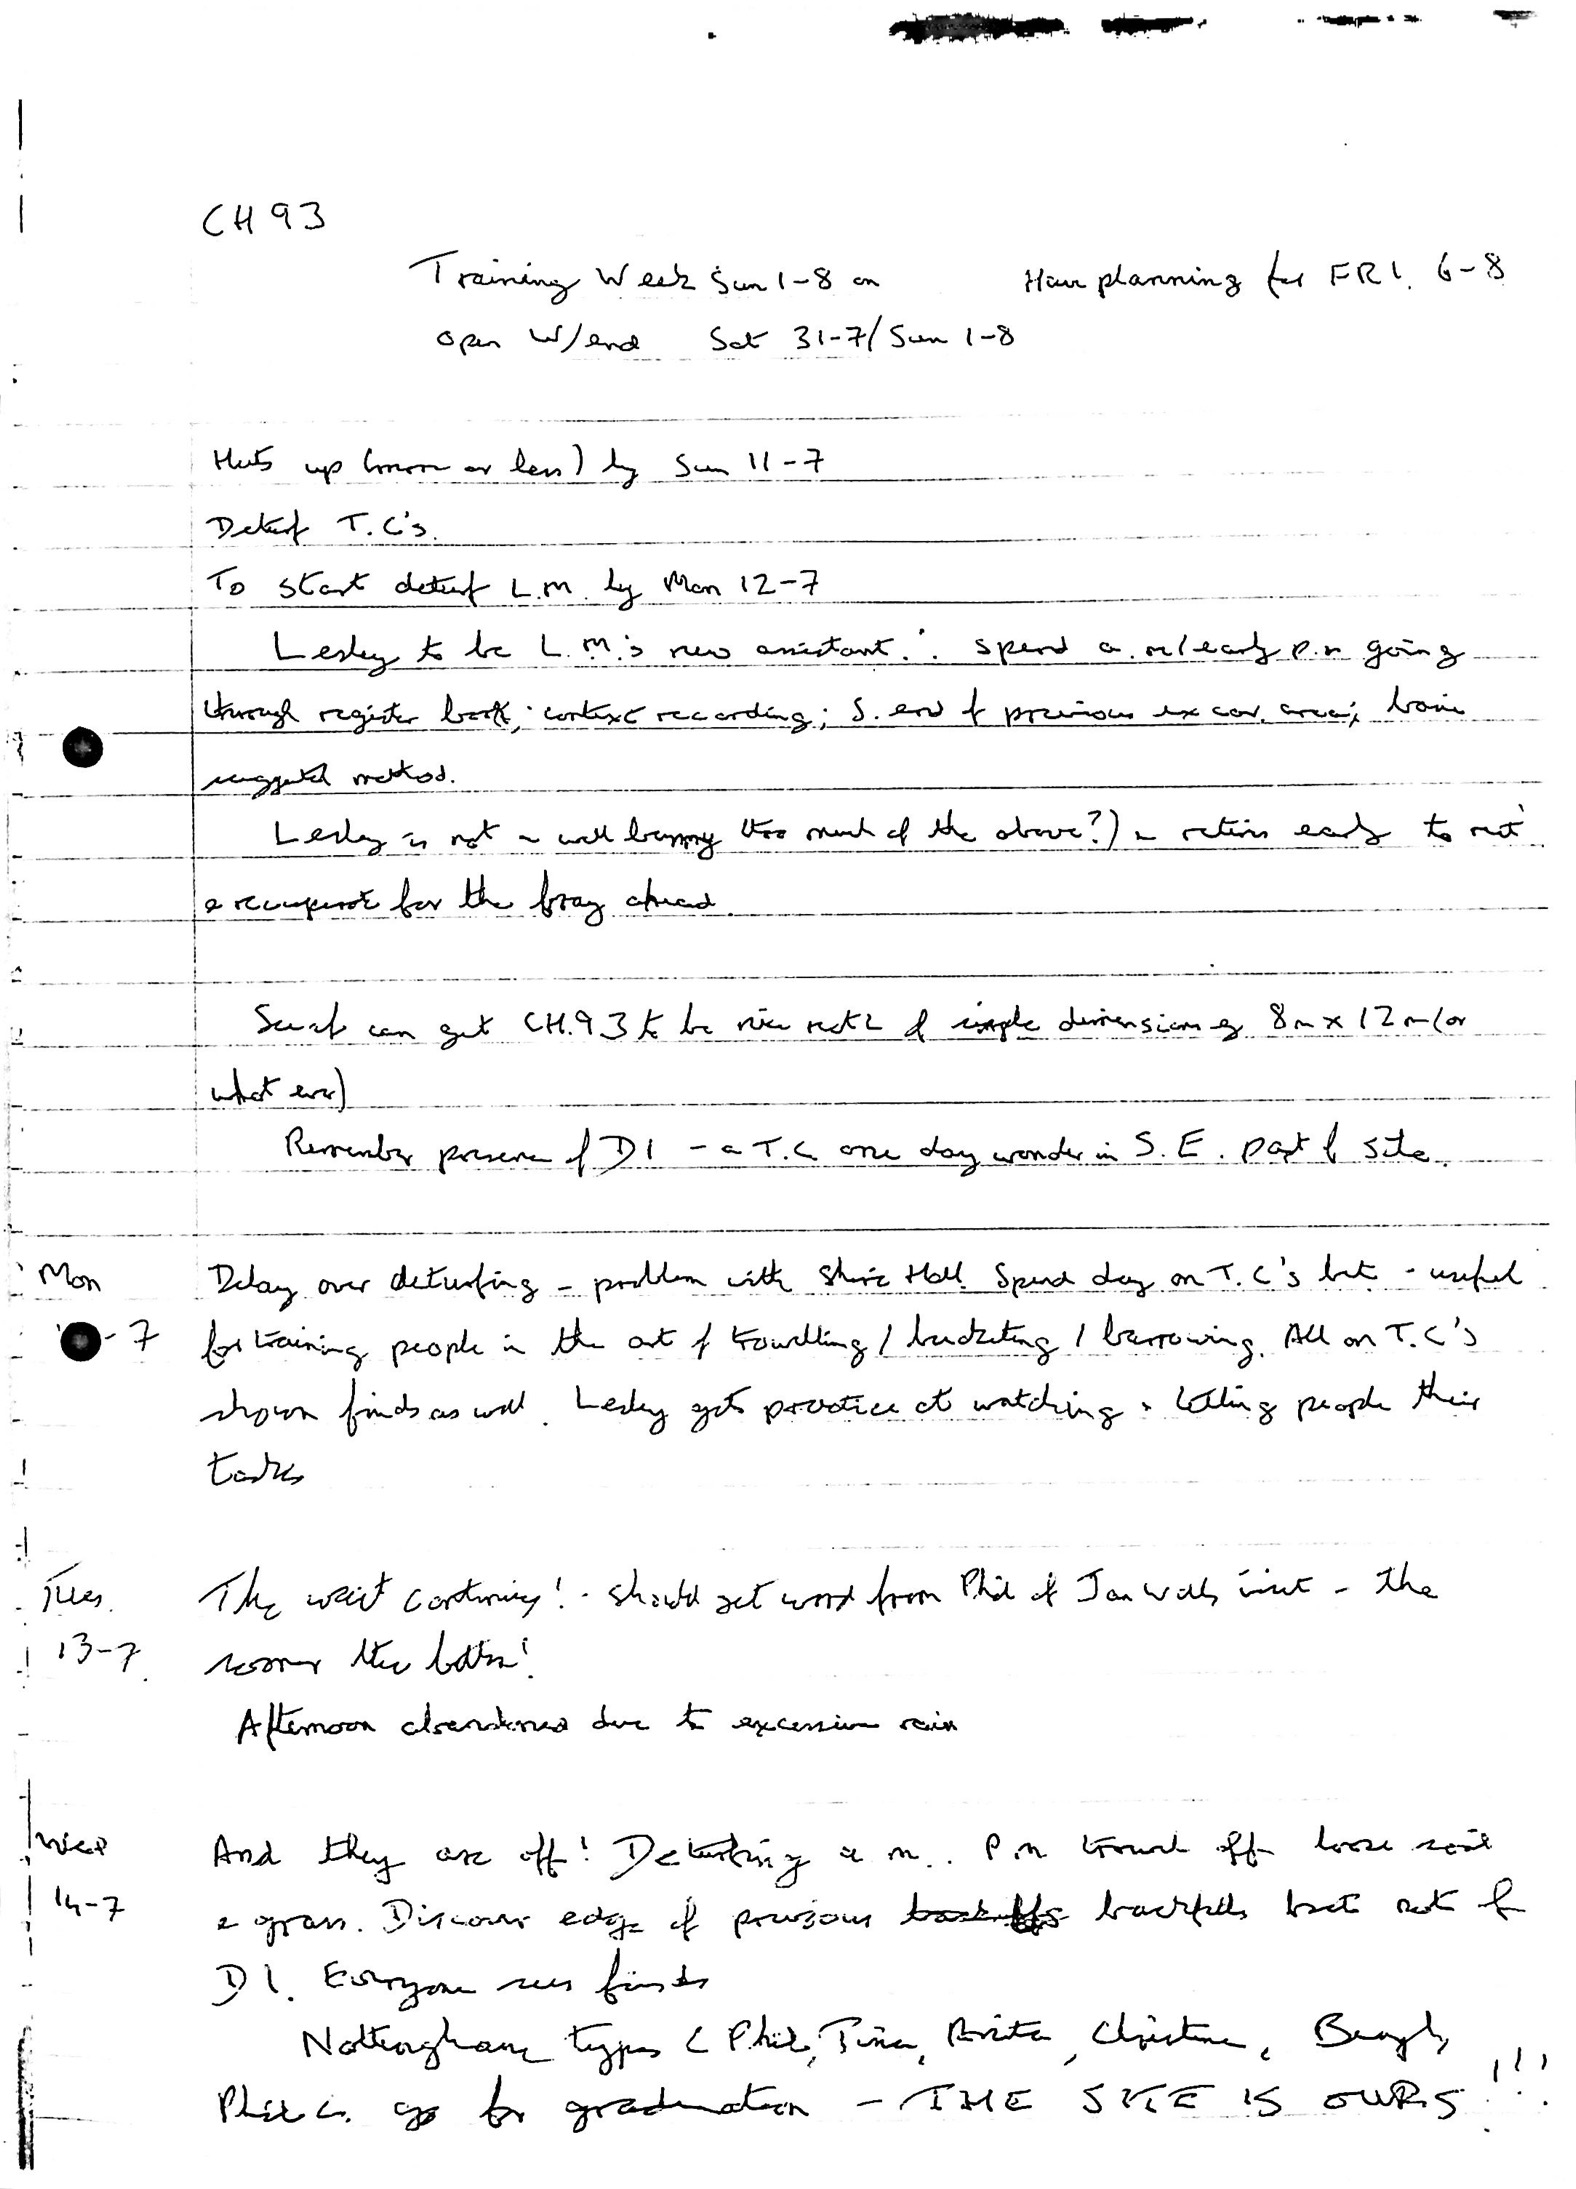 CH 93
Training Week Sun 1-8 on Have planning for FRI. 6-8
Open W/end Sat 31-7/Sun 1-8
Huts up (more or less) by Sun 11-7
Deturf T.C's.
To start deturf L.M. by Mon 12-7
Lesley to be L.M.'s new assistant ∴ spend a.m/early p.m going
through register book; context recording; S. end of previous excav. area;
suggested method.
Lesley is not a well bunny (too much of the above?) & retires early to rest
& recuperate for the fray ahead.
See if can get CH.93 to be nice rect of simple dimensions eg 8m x 12m (or
what ever)
Remember presence of D1 - a T.C. one day wonder in S.E. part of site.
Mon Delay over deturfing - problem with Shire Hall. Spend day on T.C's but - useful
-7 for training people in the art of trowelling / bucketing / barrowing. All on T.C's
shown finds as well. Lesley gets practice at watching & telling people their
tasks
Tues. The wait continues! - should get word from Phil of Jan Wills visit - the
13-7 sooner the better!
Afternoon abandoned due to excessive rain
Wed And they are off! Deturfing a.m.. P.m trowel off loose soil
14-7 & grass. Discover edge of previous backfills but not of
D1. Everyone sees finds
Nottingham types (Phil, Tina, Anita, Christine,
Phil C. go for graduation - THE SITE IS OURS!!!